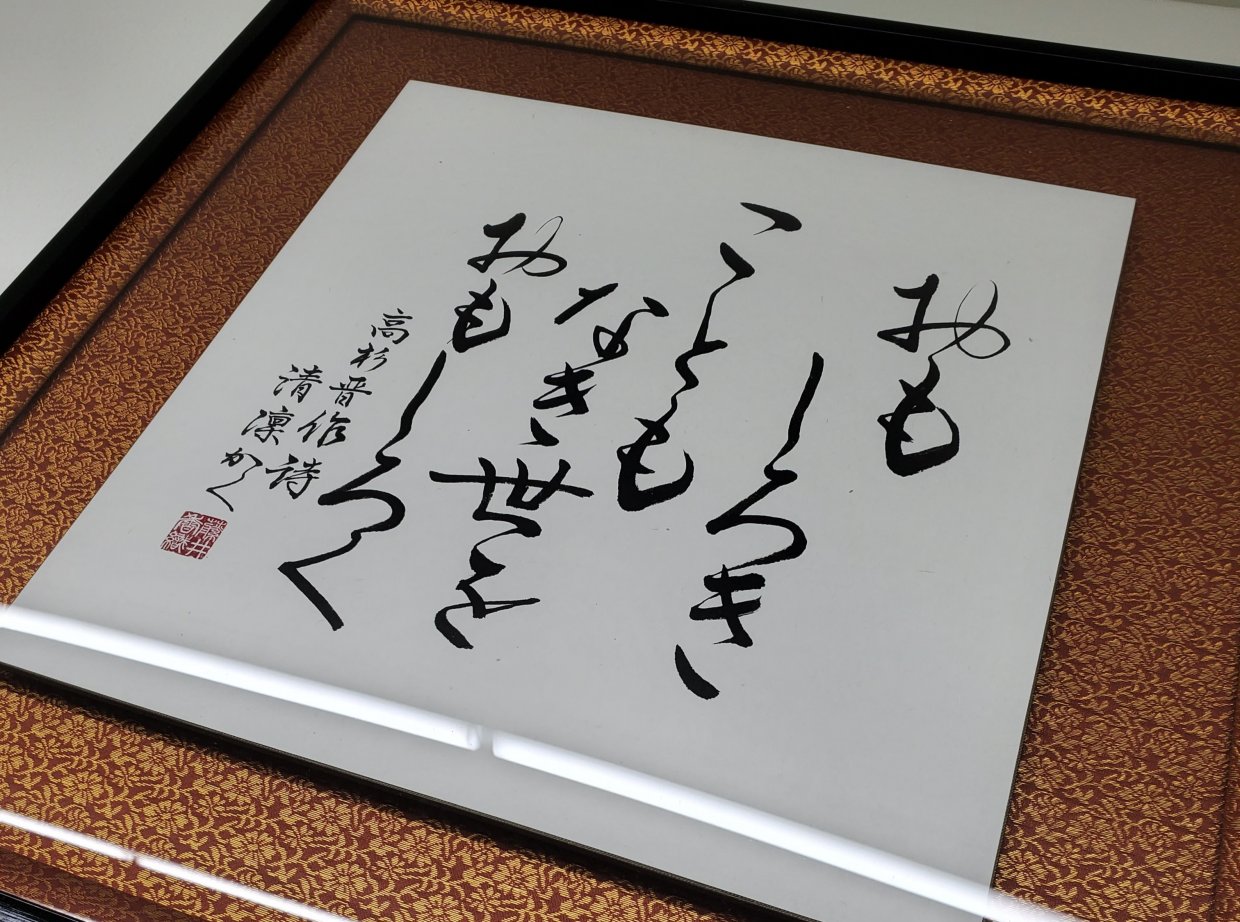 おも
しろき
こともなき世を
おもしろく
高杉晋作詩
清凛かく
藤井
香織